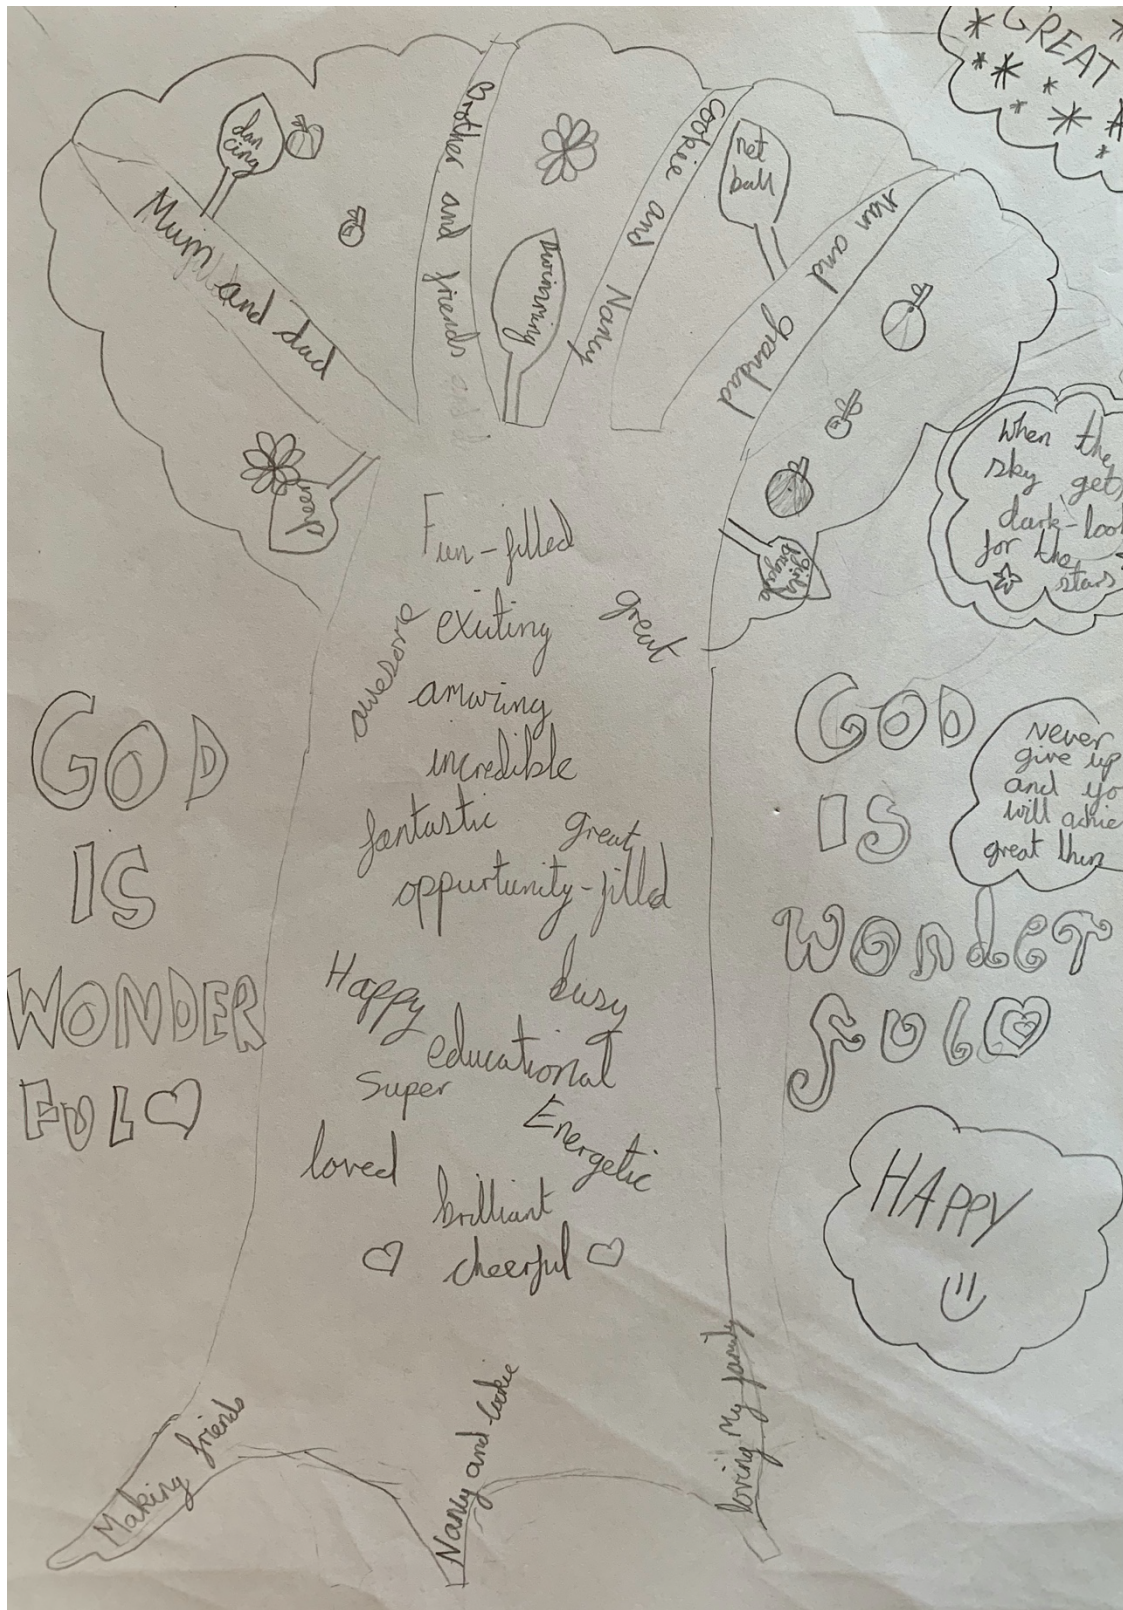 GREAT
dan
cing
Mum and dad
Brother and friends
swimming
Cookie and Nancy
net
ball
Nan and grandad
girls
brigade
When the
sky get
dark-look
for the
stars
Fun-filled
exiting
great
awesome
amazing
incredible
fantastic great
oppurtunity-filled
Happy busy
educational
Super
Energetic
loved
brilliant
cheerful
GOD
IS
WONDER
FUL
GOD
IS
WONDER
FUL
Never
give up
and yo
will achie
great thin
HAPPY
Making friends
Nancy and Cookie
loving My family